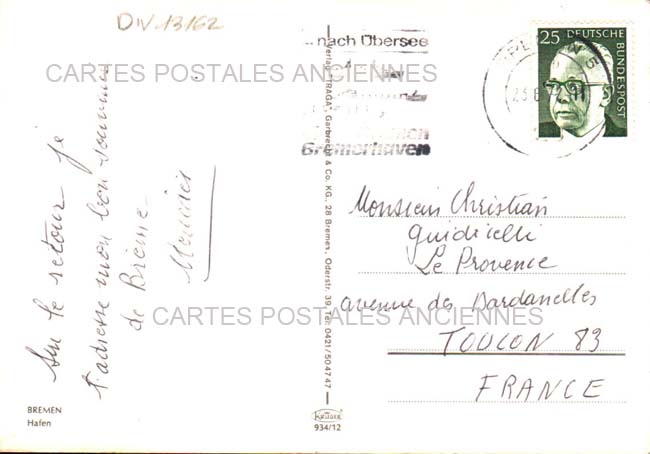 DIV.13162
nach Übersee
Bremerhaven
25 DEUTSCHE
BUNDESPOST
CARTES POSTALES ANCIENNES
Sur le retour je
t'adresse mon bon souvenir
de Brême
Verlag "TRAGA", Garbrecht & Co. KG., 28 Bremen, Oderstr. 39, Tel. 0421/504747
Monsieur Christian
Guidicelli
Le Provence
avenue des Dardanelles
CARTES POSTALES ANCIENNES
TOULON 83
FRANCE
BREMEN
Hafen
KRÜGER
934/12